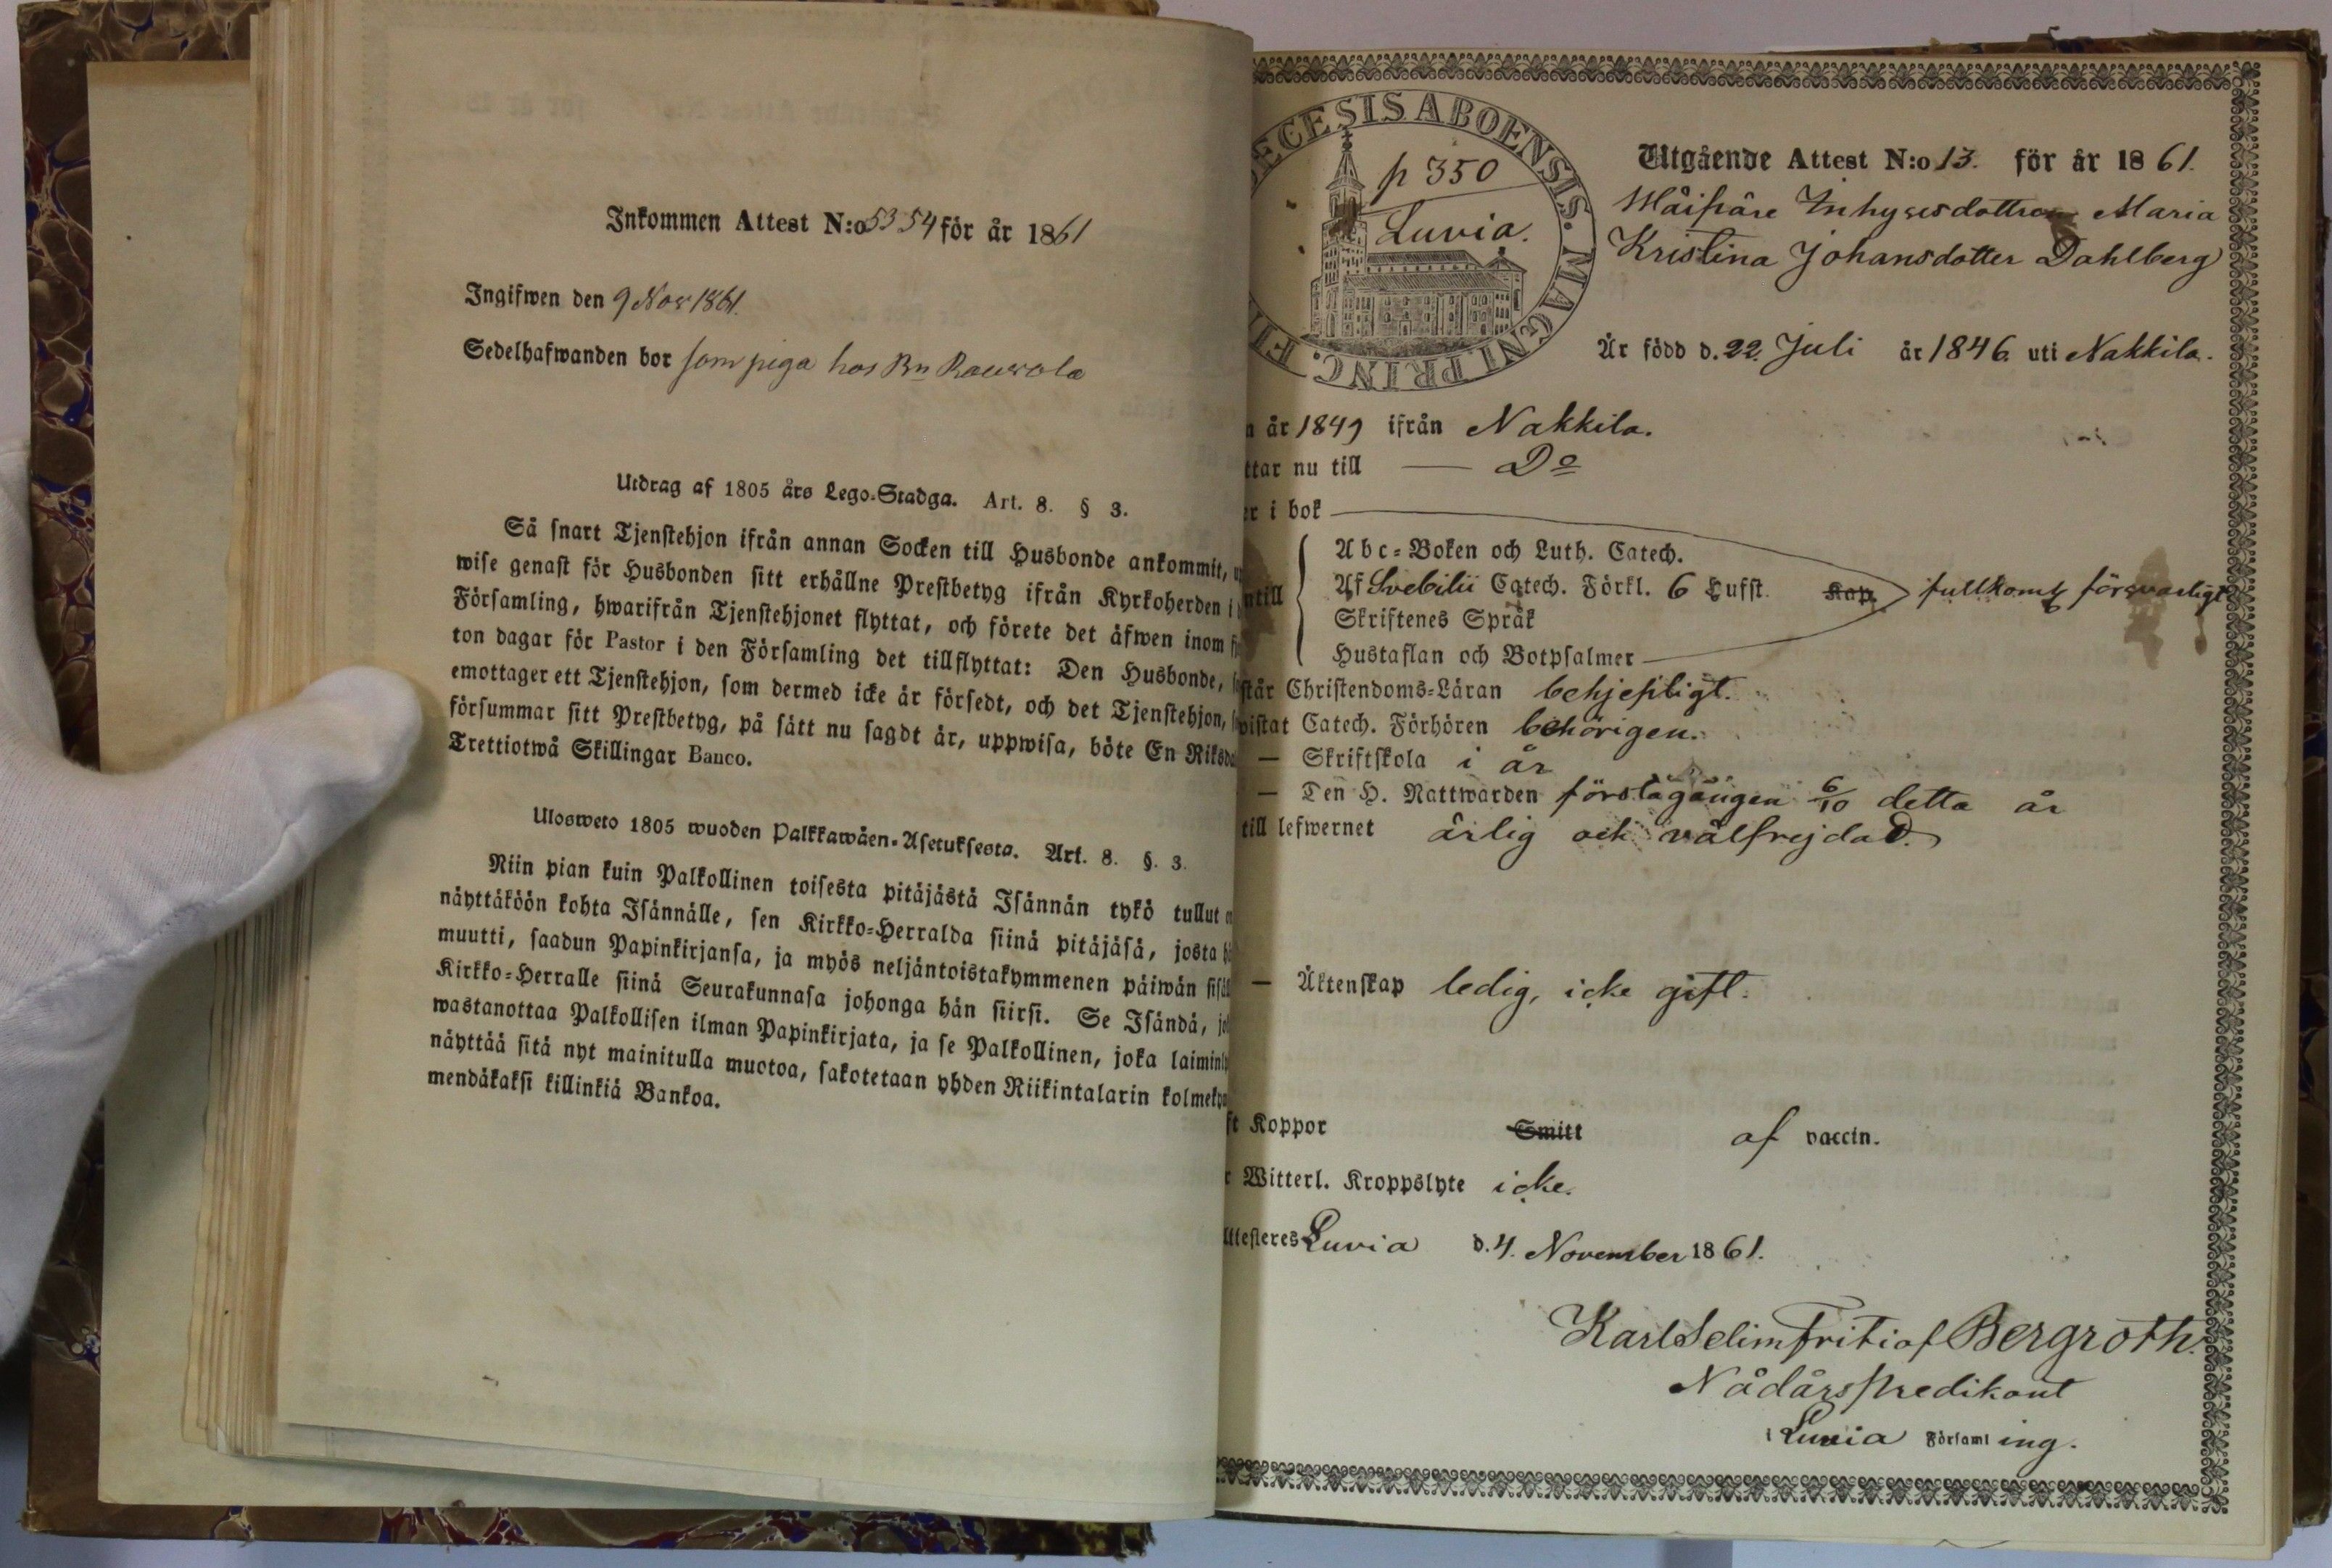 Inkommen Attest N:o 53 54 för år 1861
Ingifwen den 9 Nov 1861.
Sedelhafwanden bor som piga hos Bn Rauwola
Utdrag af 1805 års Lego-Stadga. Art. 8. § 3.
Så snart Tjenstehjon ifrån annan Socken till Husbonde ankommit,
wise genast för Husbonden sitt erhållne Prestbetyg ifrån Kyrkoherden i
Församling, hwarifrån Tjenstehjonet flyttat, och förete det äfwen inom
ton dagar för Pastor i den Församling det tillflyttat: Den Husbonde,
emottager ett Tjenstehjon, som dermed icke är försedt, och det Tjenstehjon,
försummar sitt Prestbetyg, på sätt nu sagdt är, uppwisa, böte En Riksda
Trettiotwå Skillingar Banco.
Ulosweto 1805 wuoden Palkkawäen-Asetuksesta. Art. 8. §. 3.
Niin pian kuin Palkollinen toisesta pitäjästä Isännän tykö tullut
näyttäköön kohta Isännälle, sen Kirkko-Herralda siinä pitäjäsä, josta hä
muutti, saadun Papinkirjansa, ja myös neljäntoistakymmenen päiwän sisäl
Kirkko-Herralle siinä Seurakunnasa johonga hän siirsi. Se Isändä, jo
wastanottaa Palkollisen ilman Papinkirjata, ja se Palkollinen, joka laiminly
näyttää sitä nyt mainitulla muotoa, sakotetaan yhden Riikintalarin kolmeky
mendäkaksi killinkiä Bankoa.
ECESIS ABOENSIS. MAGNI PRINC. FI
p 350
Luvia.
Utgående Attest N:o 13. för år 1861.
Måipäre Inhysesdottren Maria
Kristina Johansdotter Dahlberg
Är född d. 22. Juli år 1846. uti Nakkila.
n år 1849 ifrån Nakkila.
ttar nu till — Do
er i bok
ntill
Abc-Boken och Luth. Catech.
Af Svebilii Catech. Förkl. 6 Lufst. Kap. fullkoml försvarligt
Skriftenes Språk
Hustaflan och Botpsalmer
står Christendoms-Läran behjepligt.
wistat Catech. Förhören behörigen.
— Skriftskola i år
— Den H. Nattwarden förstagången 6/10 detta år
till lefwernet ärlig och välfrejdad.
— Äktenskap ledig, icke gift.
ft Koppor Smitt af vaccin.
r Witterl. Kroppslyte icke.
Attesteres Luvia d. 4. November 1861.
Karl Selim Fritiof Bergroth.
Nådårspredikant
i Luvia Församling.